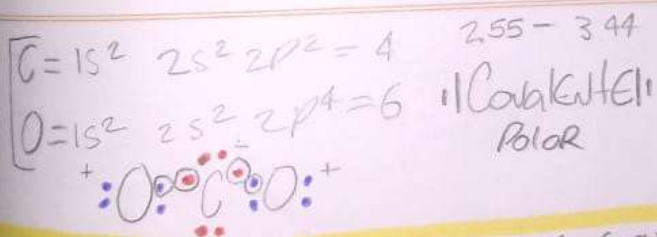 C=1S² 2S² 2P² = 4
2,55 - 3 44
O=1S² 2S² 2P⁴ = 6
"CovalENtE"
PolaR
+ - +
:O C O: